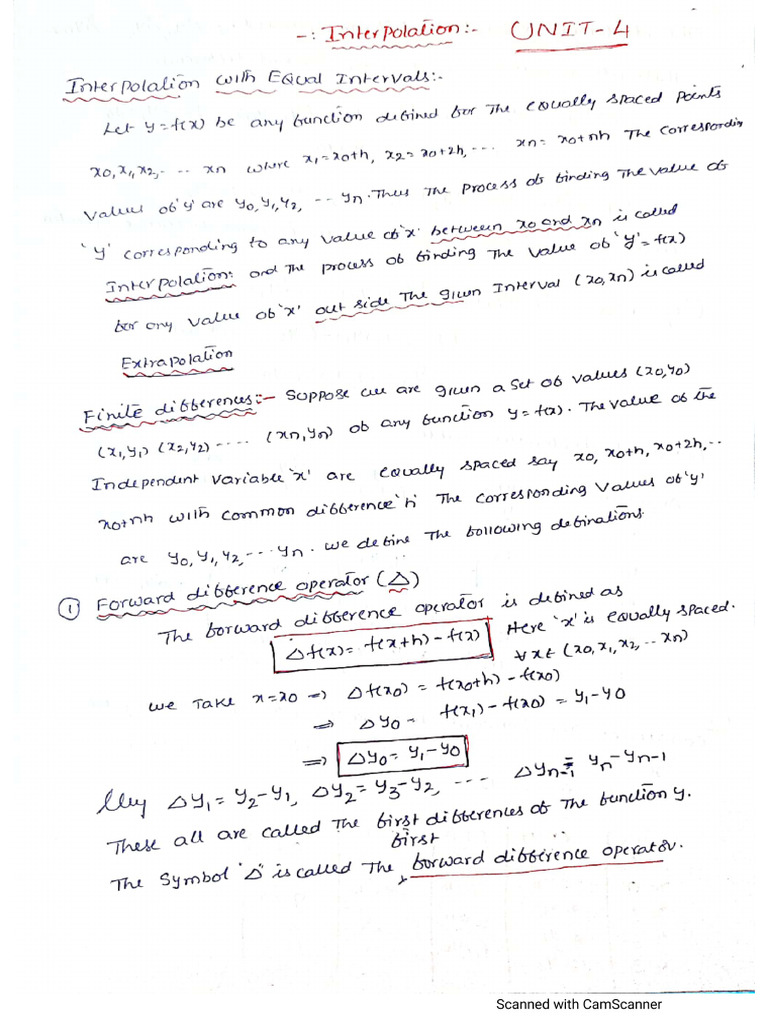 -: Interpolation:- UNIT-4
Interpolation with Equal Intervals:-
Let y=f(x) be any function defined for The equally spaced points
x0, x1, x2, ... xn where x1=x0+h, x2=x0+2h, ... xn=x0+nh The corresponding
Values of 'y' are y0, y1, y2, ... yn. Thus The process of finding The value of
'y' corresponding to any value of 'x' between x0 and xn is called
Interpolation: and The process of finding The value of 'y'=f(x)
for any value of 'x' out side The given Interval (x0, xn) is called
Extrapolation
Finite differences:- Suppose we are given a set of values (x0, y0)
(x1, y1) (x2, y2) ..... (xn, yn) of any function y=f(x). The value of the
Independent variable 'x' are equally spaced say x0, x0+h, x0+2h, ..
x0+nh with common difference 'h' The corresponding Values of 'y'
are y0, y1, y2, ... yn. we define The following definations.
① Forward difference operator (△)
The forward difference operator is defined as
△f(x) = f(x+h) - f(x) Here 'x' is equally spaced.
∀ x ∈ (x0, x1, x2, .. xn)
we Take x=x0 ⇒ △f(x0) = f(x0+h) - f(x0)
⇒ △y0 = f(x1) - f(x0) = y1-y0
⇒ △y0 = y1-y0
llly △y1 = y2-y1, △y2 = y3-y2, ... △yn-1 = yn-yn-1
These all are called The first differences of The function y.
first
The Symbol '△' is called The forward difference operator.
Scanned with CamScanner